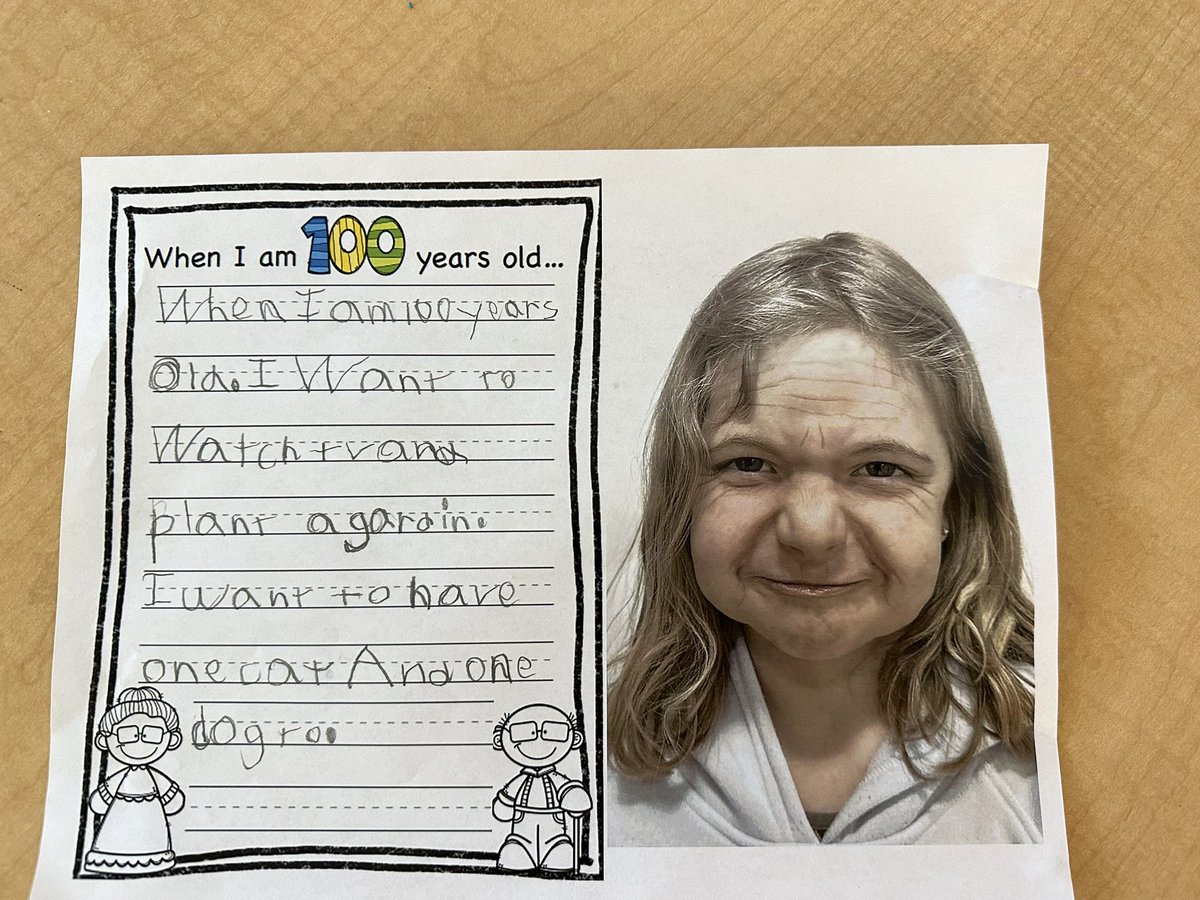 When I am 100 years old...
When I am 100 years
Old. I Want to
Watch tv and
plant a gardin.
I want to have
one cat And one
dog to.